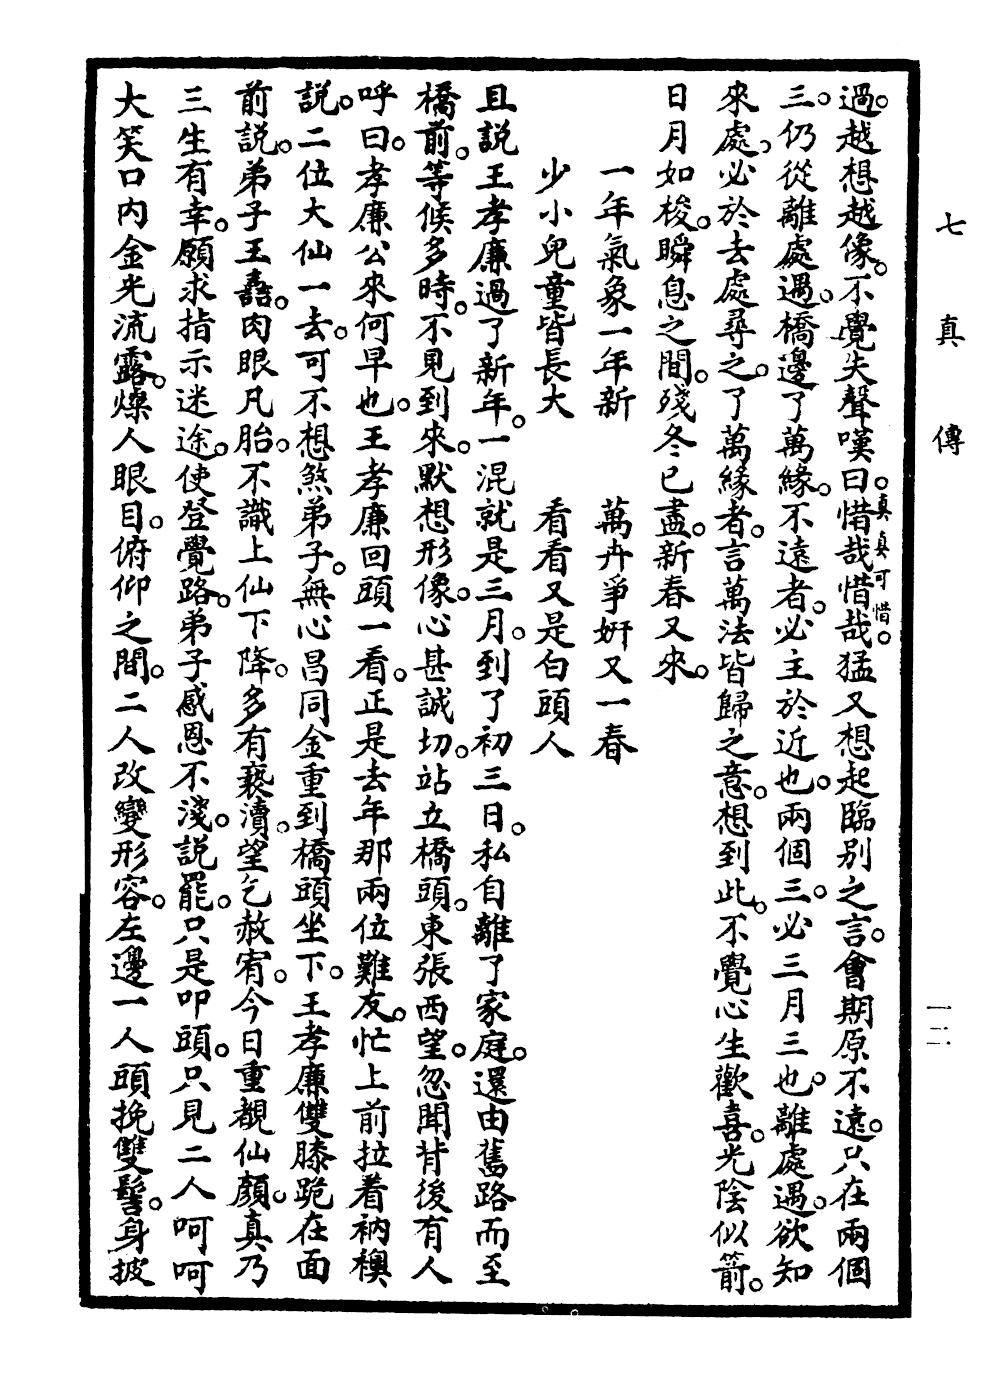 七真傳
一二
過。越想越像。不覺失聲嘆曰。惜哉惜哉。猛又想起臨別之言。會期原不遠。只在兩個
真真可惜
三。仍從離處遇。橋邊了萬緣。不遠者。必主於近也。兩個三。必三月三也。離處遇。欲知
來處。必於去處尋之。了萬緣者。言萬法皆歸之意。想到此。不覺心生歡喜。光陰似箭。
日月如梭。瞬息之間。殘冬已盡。新春又來。
一年氣象一年新　萬卉爭妍又一春
少小兒童皆長大　看看又是白頭人
且說王孝廉過了新年。一混就是三月。到了初三日。私自離了家庭。還由舊路而至
橋前。等候多時。不見到來。默想形像。心甚誠切。站立橋頭。東張西望。忽聞背後有人
呼曰。孝廉公來何早也。王孝廉回頭一看。正是去年那兩位難友。忙上前拉着衲襖
說。二位大仙一去。可不想煞弟子。無心昌同金重到橋頭坐下。王孝廉雙膝跪在面
前說。弟子王嚞。肉眼凡胎。不識上仙下降。多有褻瀆。望乞赦宥。今日重覩仙顏。真乃
三生有幸。願求指示迷途。使登覺路。弟子感恩不淺。說罷。只是叩頭。只見二人呵呵
大笑口內金光流露。燦人眼目。俯仰之間。二人改變形容。左邊一人頭挽雙髻。身披